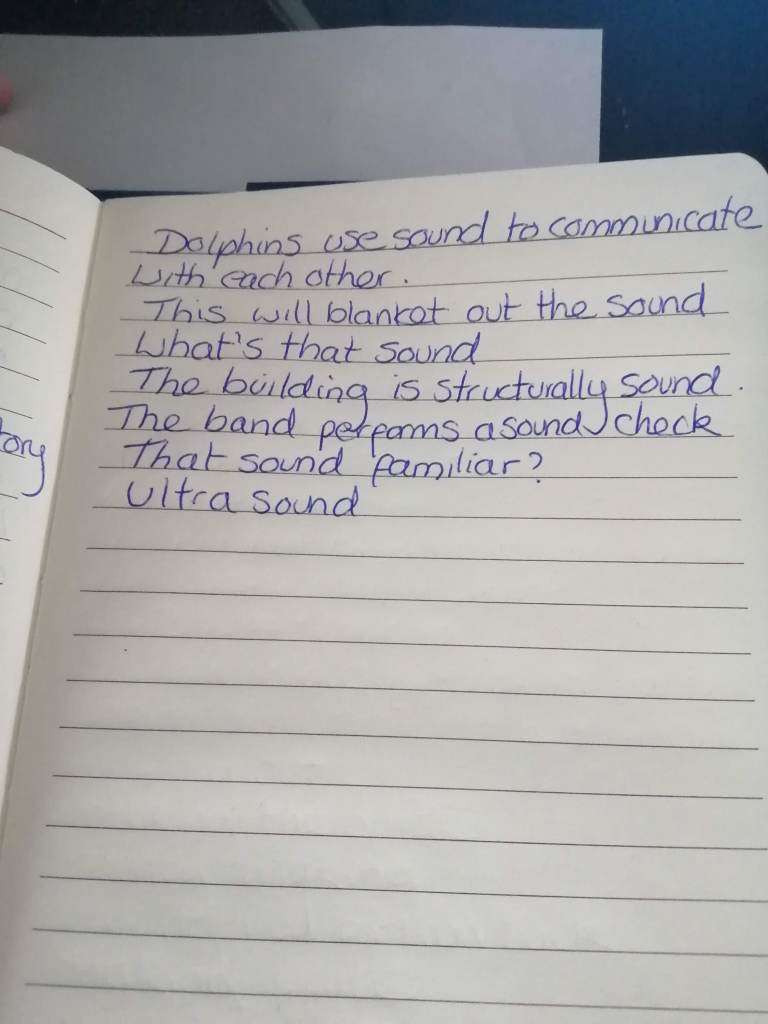 Dolphins use sound to communicate
with each other.
This will blanket out the sound
What's that sound
The building is structurally sound.
The band performs a sound check
That sound familiar?
Ultra sound
tory